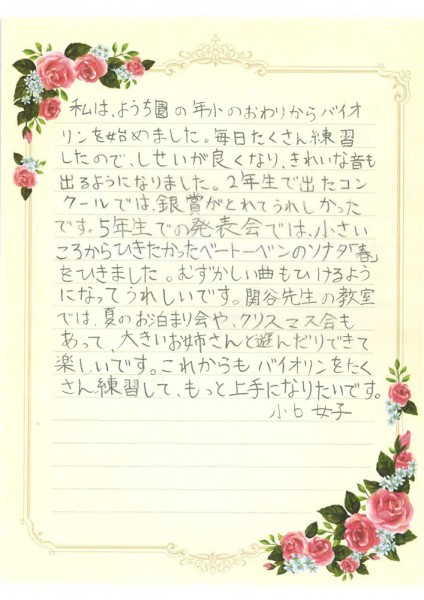 私は、ようち園の年小のおわりからバイオ
リンを始めました。毎日たくさん練習
したので、しせいが良くなり、きれいな音も
出るようになりました。2年生で出たコン
クールでは、銀賞がとれてうれしかった
です。5年生での発表会では、小さい
ころからひきたかったベートーベンのソナタ「春」
をひきました。むずかしい曲もひけるよう
になってうれしいです。関谷先生の教室
では、夏のお泊まり会や、クリスマス会も
あって、大きいお姉さんと遊んだりできて
楽しいです。これからもバイオリンをたく
さん練習して、もっと上手になりたいです。
小6 女子